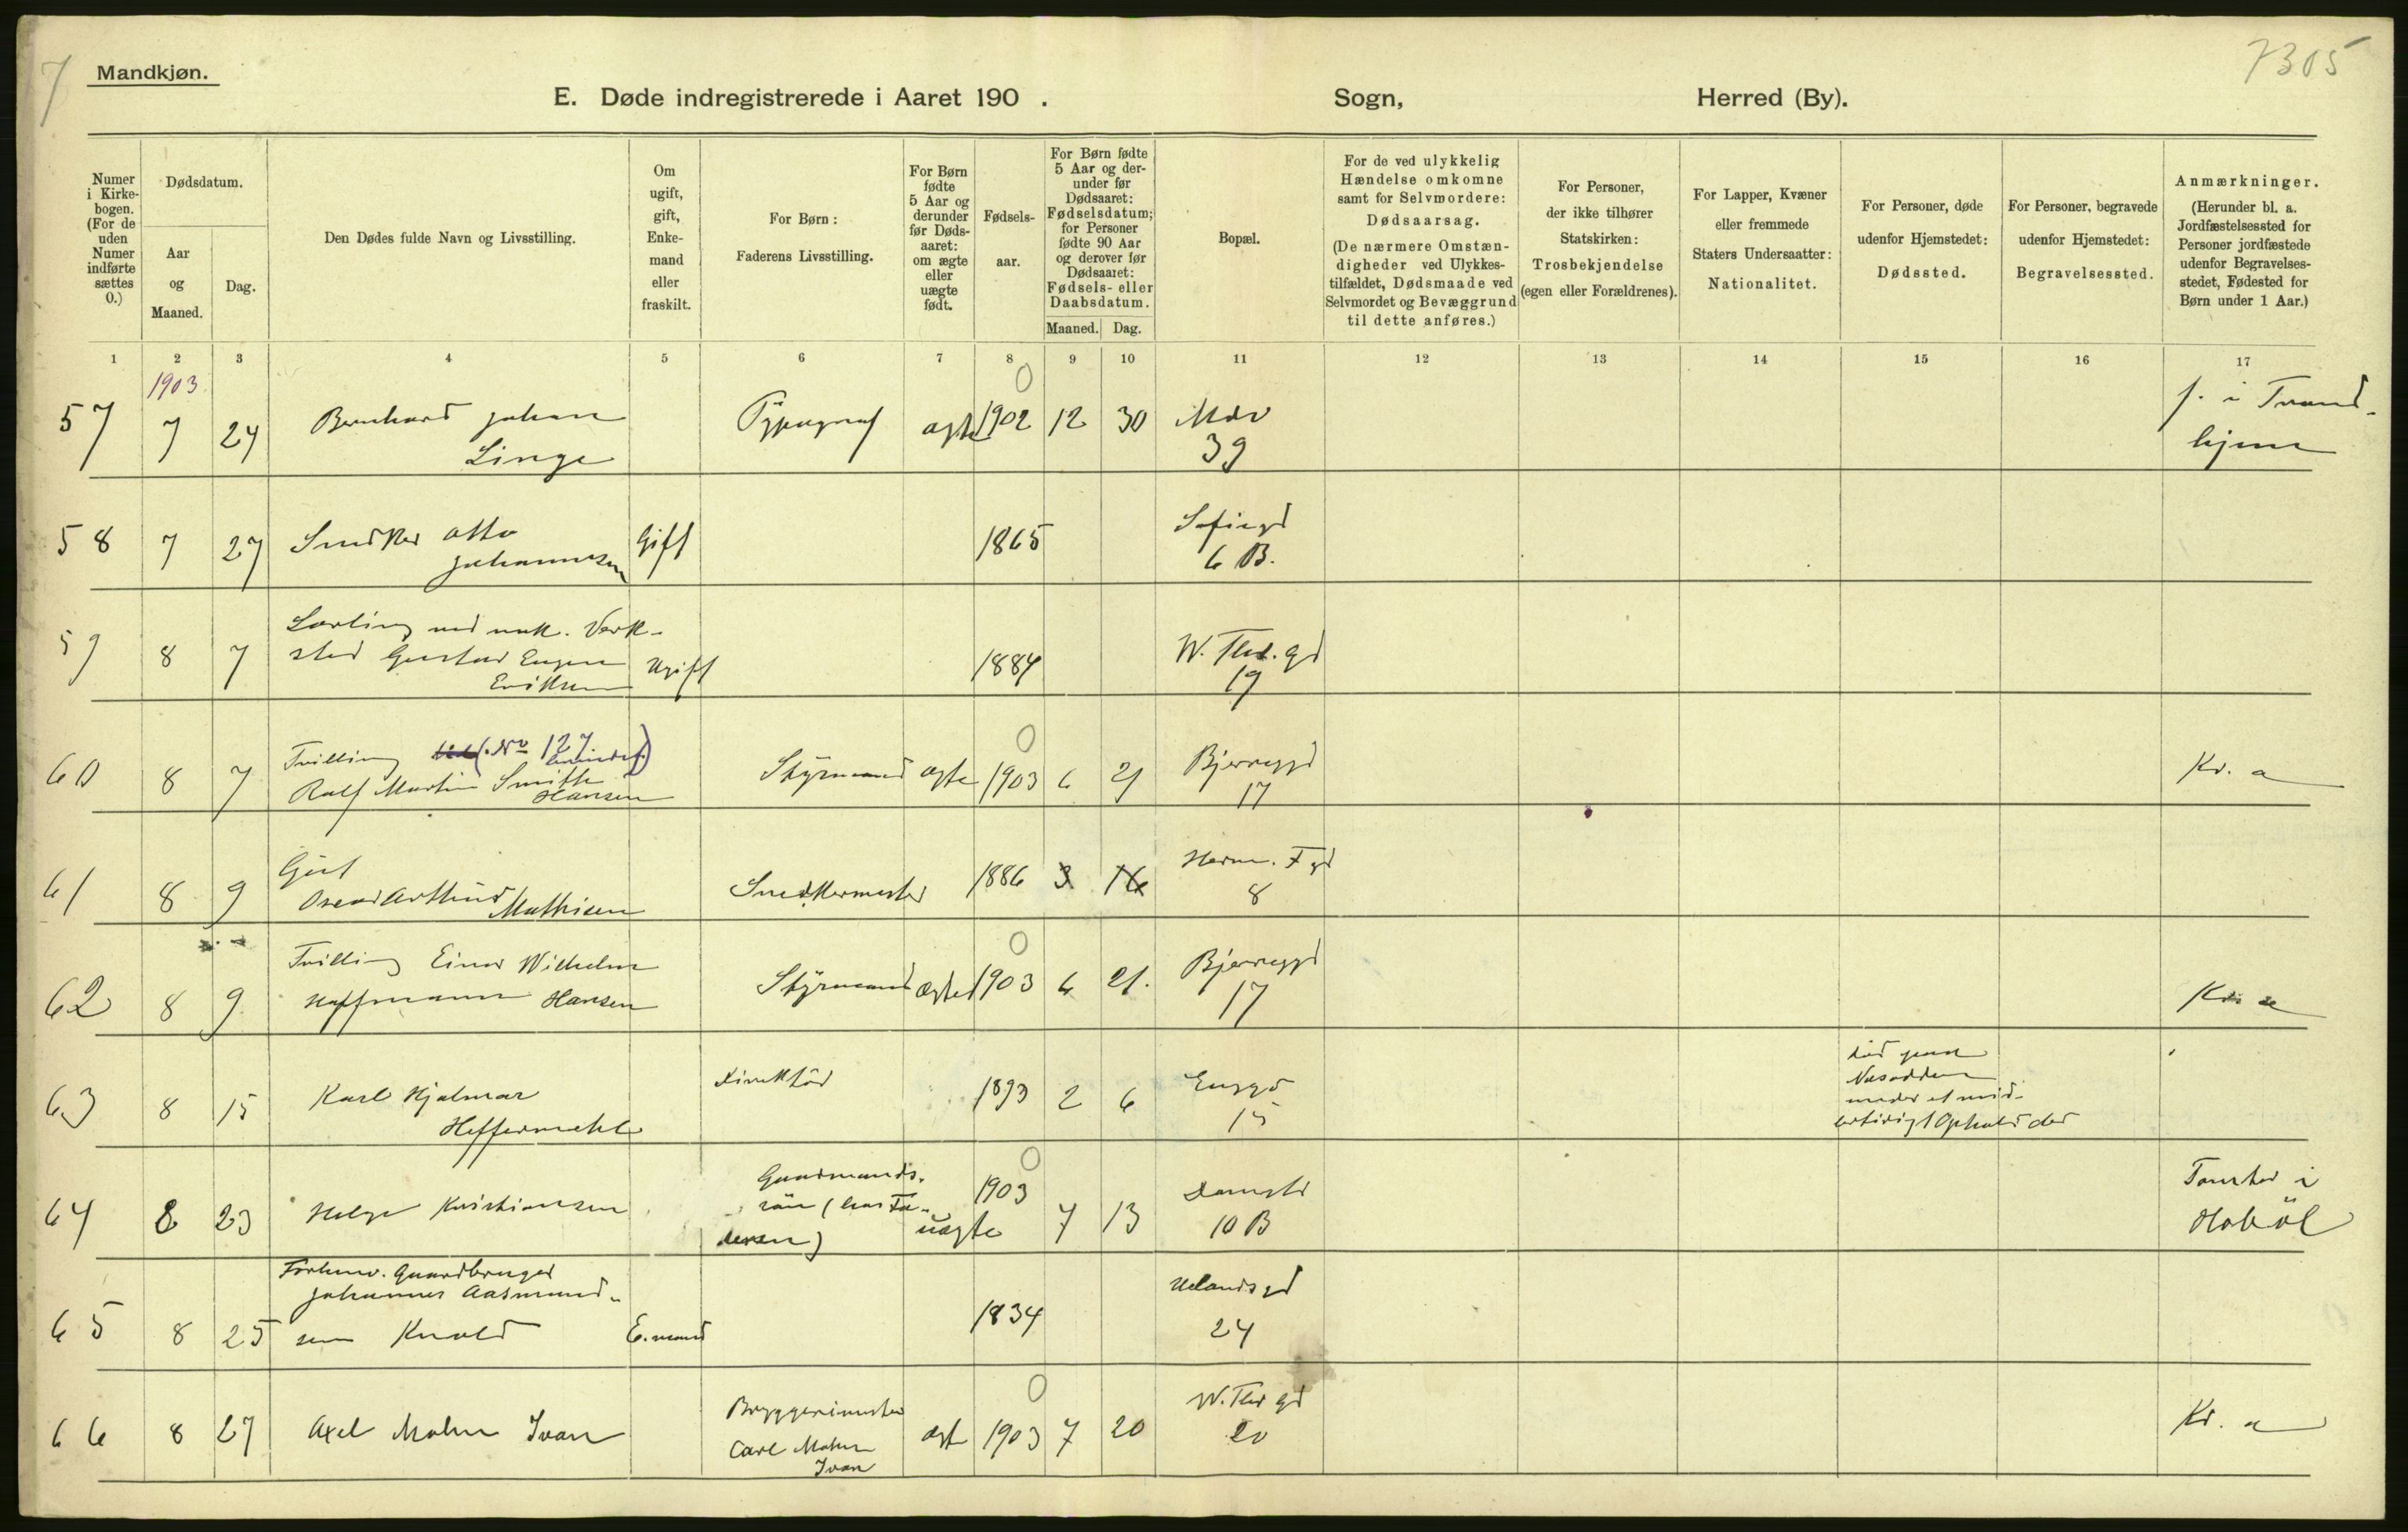 7
Mandkjøn.
7305
E. Døde indregistrerede i Aaret 190 . Sogn, Herred (By).
Numer i Kirkebogen. (For de uden Numer indførte sættes 0.)
Dødsdatum.
Aar og Maaned.
Dag.
Den Dødes fulde Navn og Livsstilling.
Om ugift, gift, Enkemand eller fraskilt.
For Børn: Faderens Livsstilling.
For Børn fødte 5 Aar og derunder før Dødsaaret: om ægte eller uægte født.
Fødselsaar.
For Børn fødte 5 Aar og derunder før Dødsaaret: Fødselsdatum; for Personer fødte 90 Aar og derover før Dødsaaret: Fødsels- eller Daabsdatum.
Maaned. Dag.
Bopæl.
For de ved ulykkelig Hændelse omkomne samt for Selvmordere: Dødsaarsag. (De nærmere Omstændigheder ved Ulykkestilfældet, Dødsmaade ved Selvmordet og Bevæggrund til dette anføres.)
For Personer, der ikke tilhører Statskirken: Trosbekjendelse (egen eller Forældrenes).
For Lapper, Kvæner eller fremmede Staters Undersaatter: Nationalitet.
For Personer, døde udenfor Hjemstedet: Dødssted.
For Personer, begravede udenfor Hjemstedet: Begravelsessted.
Anmærkninger. (Herunder bl. a. Jordfæstelsessted for Personer jordfæstede udenfor Begravelsesstedet, Fødested for Børn under 1 Aar.)
1 2 3 4 5 6 7 8 9 10 11 12 13 14 15 16 17
1903
57 7 24 Bernhard Johan Linge Typograf ægte 1902 0 12 30 Mdv 39 f. i Trondhjem
58 7 27 Snedker Otto Johannesen Gift 1865 Sofiegd 6 B.
59 8 7 Lærling ved mek. Verksted Gustav Eugen Eriksen Ugift 1884 W. Thr. gd 19
60 8 7 Tvilling (No 127 kvindekj.) Ralf Martin Smith Hansen Styrmand ægte 1903 0 6 21 Bjerregd 17 Kr. a
61 8 9 Gut Oscar Arthur Mathisen Snedkermester 1886 3 16 Herm. F gd 8
62 8 9 Tvilling Einar Wilhelm Hoffmann Hansen Styrmand ægte 1903 0 6 21. Bjerregd 17 Kr. a
63 8 15 Karl Hjalmar Heffermehl Direktør 1893 2 6 Enggd 15 død paa Næsodden under et midlertidigt Ophold der
64 8 23 Helge Kristiansen Gaardmandssøn (hos Faderen) uægte 1903 0 7 13 Damstr 10 B Tomter i Hobøl
65 8 25 Forhenv. Gaardbruger Johannes Aasmundsen Kvold E.mand 1834 Uelandsgd 24
66 8 27 Axel Malm Ivan Bryggerimester Carl Malm Ivan ægt 1903 0 7 20 W. Thr gd 20 Kr. a